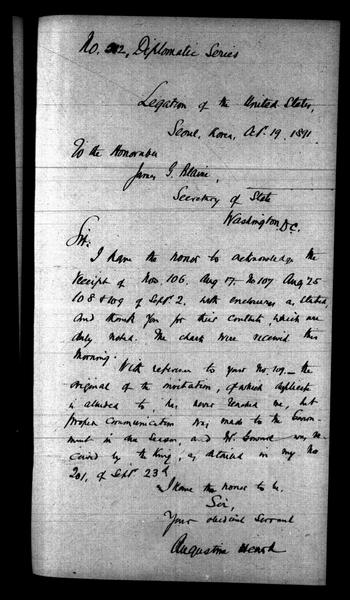 No. 202, Diplomatic Series
Legation of the United States,
Seoul, Korea, Oct. 19, 1891
To the Honorable
James G. Blaine,
Secretary of State
Washington D.C.
Sir:
I have the honor to acknowledge the
receipt of Nos. 106, Aug 17. No 107 Aug 25
108 & 109 of Sept. 2, with enclosures as stated,
and thank you for their contents, which are
duly noted. The were received this
morning.
With reference to your No. 109 – the
original of the invitation, of which duplicate
is alluded to, has never reached me, but
proper communication was made to the Govern-
ment in due season, and Mr. was re-
ceived by the King, as detailed in my No
201, of Sept. 23d.
I have the honor to be,
Sir,
Your obedient Servant
Augustine Heard